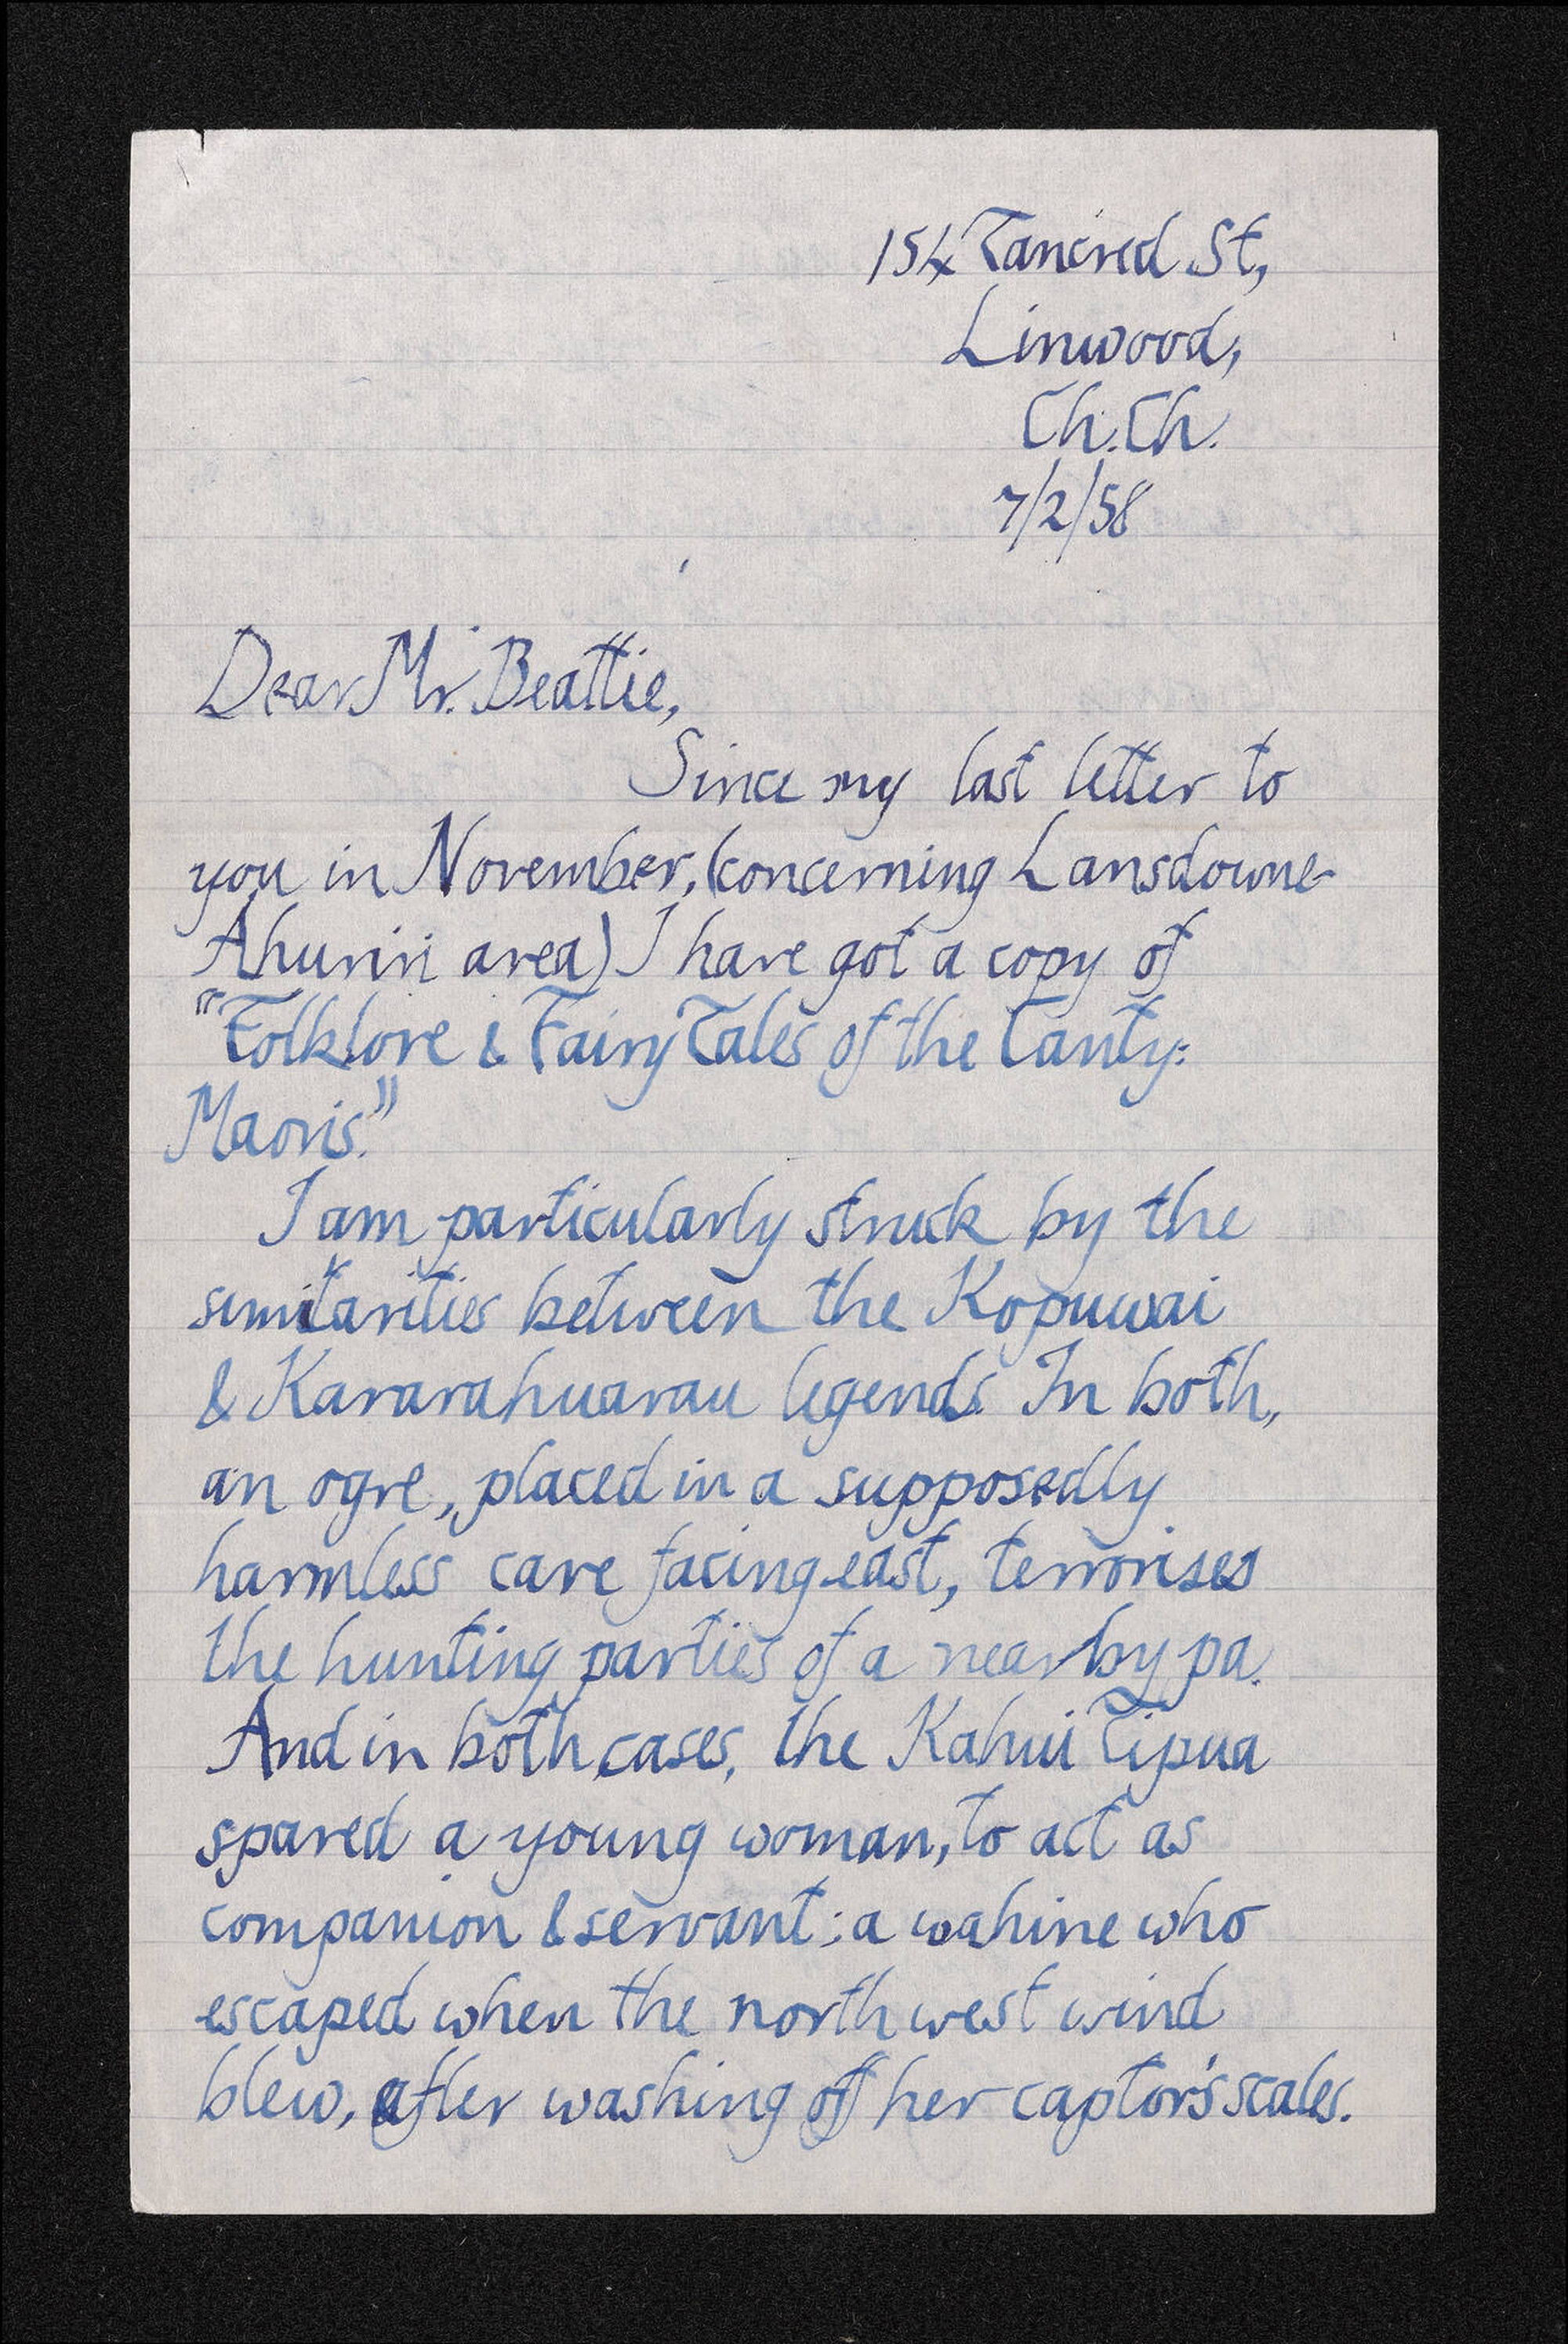 154 Tancred St,
Linwood,
Ch.Ch.
7/2/58
Dear Mr. Beattie,
Since my last letter to
you in November, (concerning Lansdowne-
Ahuriri area) I have got a copy of
"Folklore & Fairy Tales of the Canty:
Maoris."
I am particularly struck by the
similarities between the Kopuwai
& Kararahuarau legends. In both,
an ogre, placed in a supposedly
harmless cave facing east, terrorises
the hunting parties of a nearby pa.
And in both cases, the Kahui Tipua
spared a young woman, to act as
companion & servant; a wahine who
escaped when the north west wind
blew, after washing off her captor's scales.